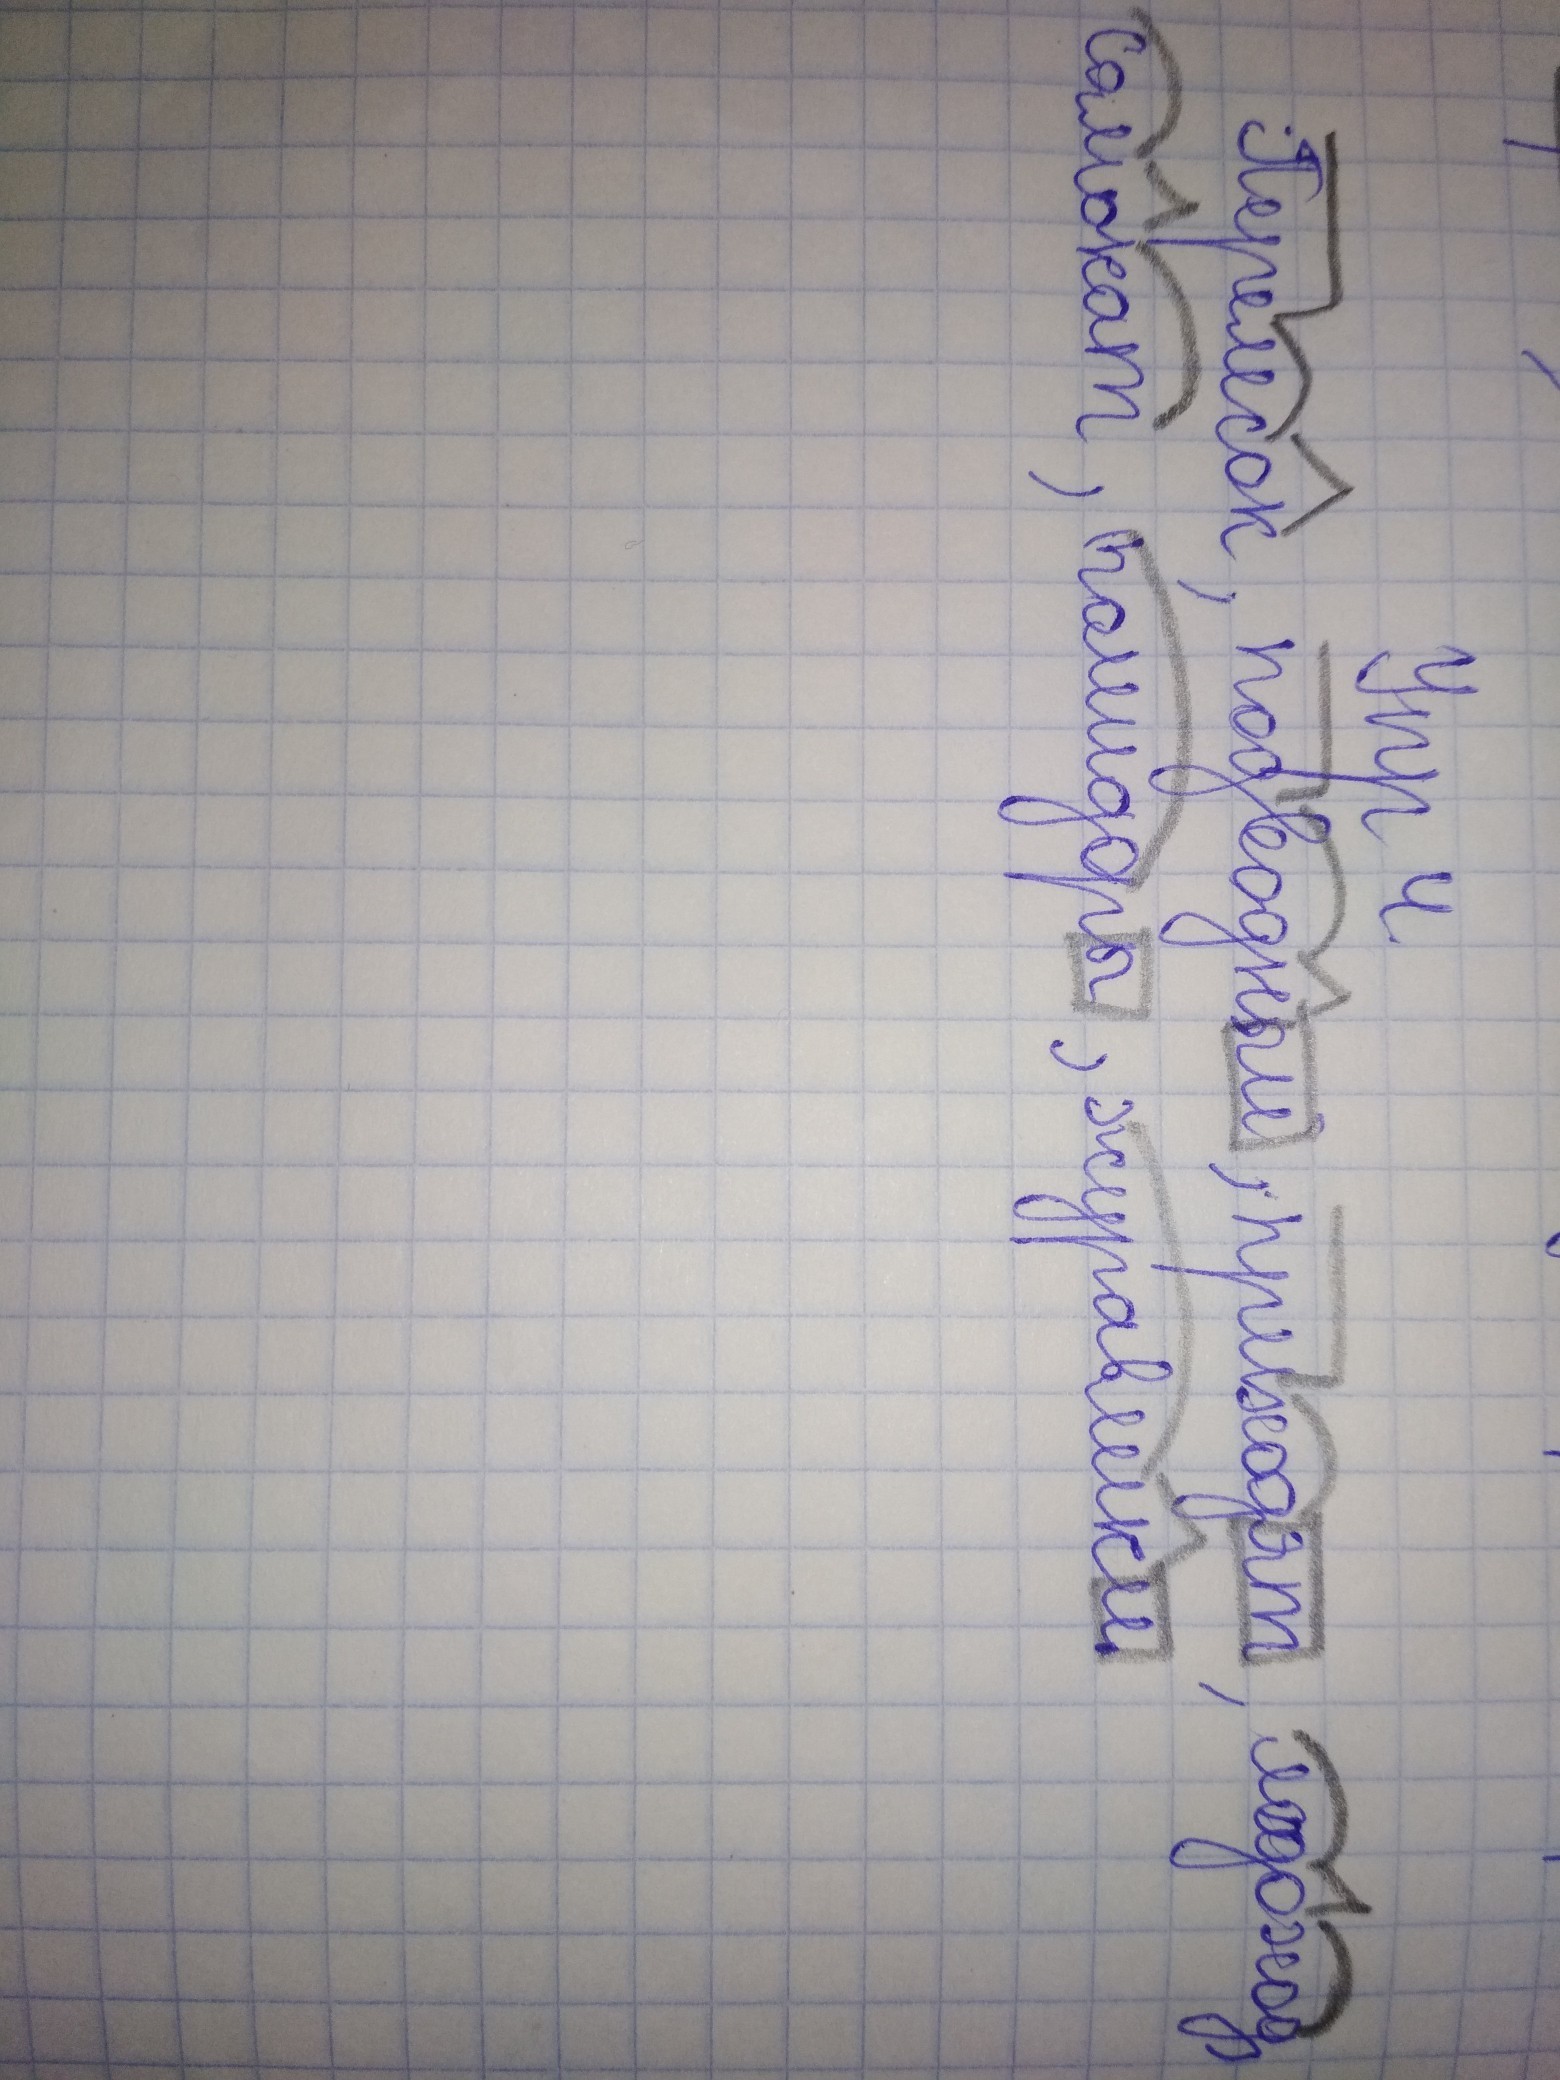 Упр 4.
Перелесок, подводный, приходят, ледоход
самокат, помидоры, журавлики